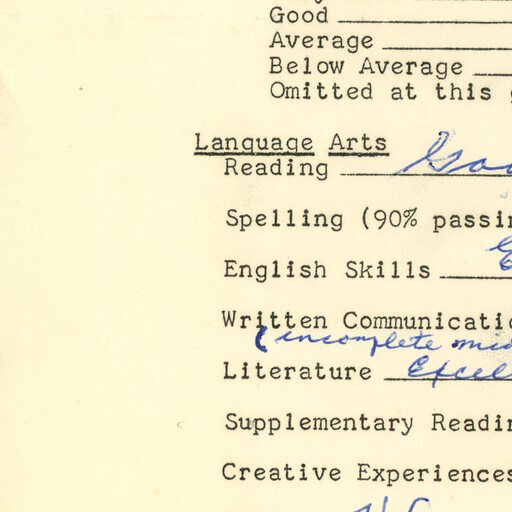 Good
Average
Below Average
Omitted at this
Language Arts
Reading Goo
Spelling (90% passin
English Skills
Written Communicatio
(incomplete
Literature Excel
Supplementary Readin
Creative Experiences